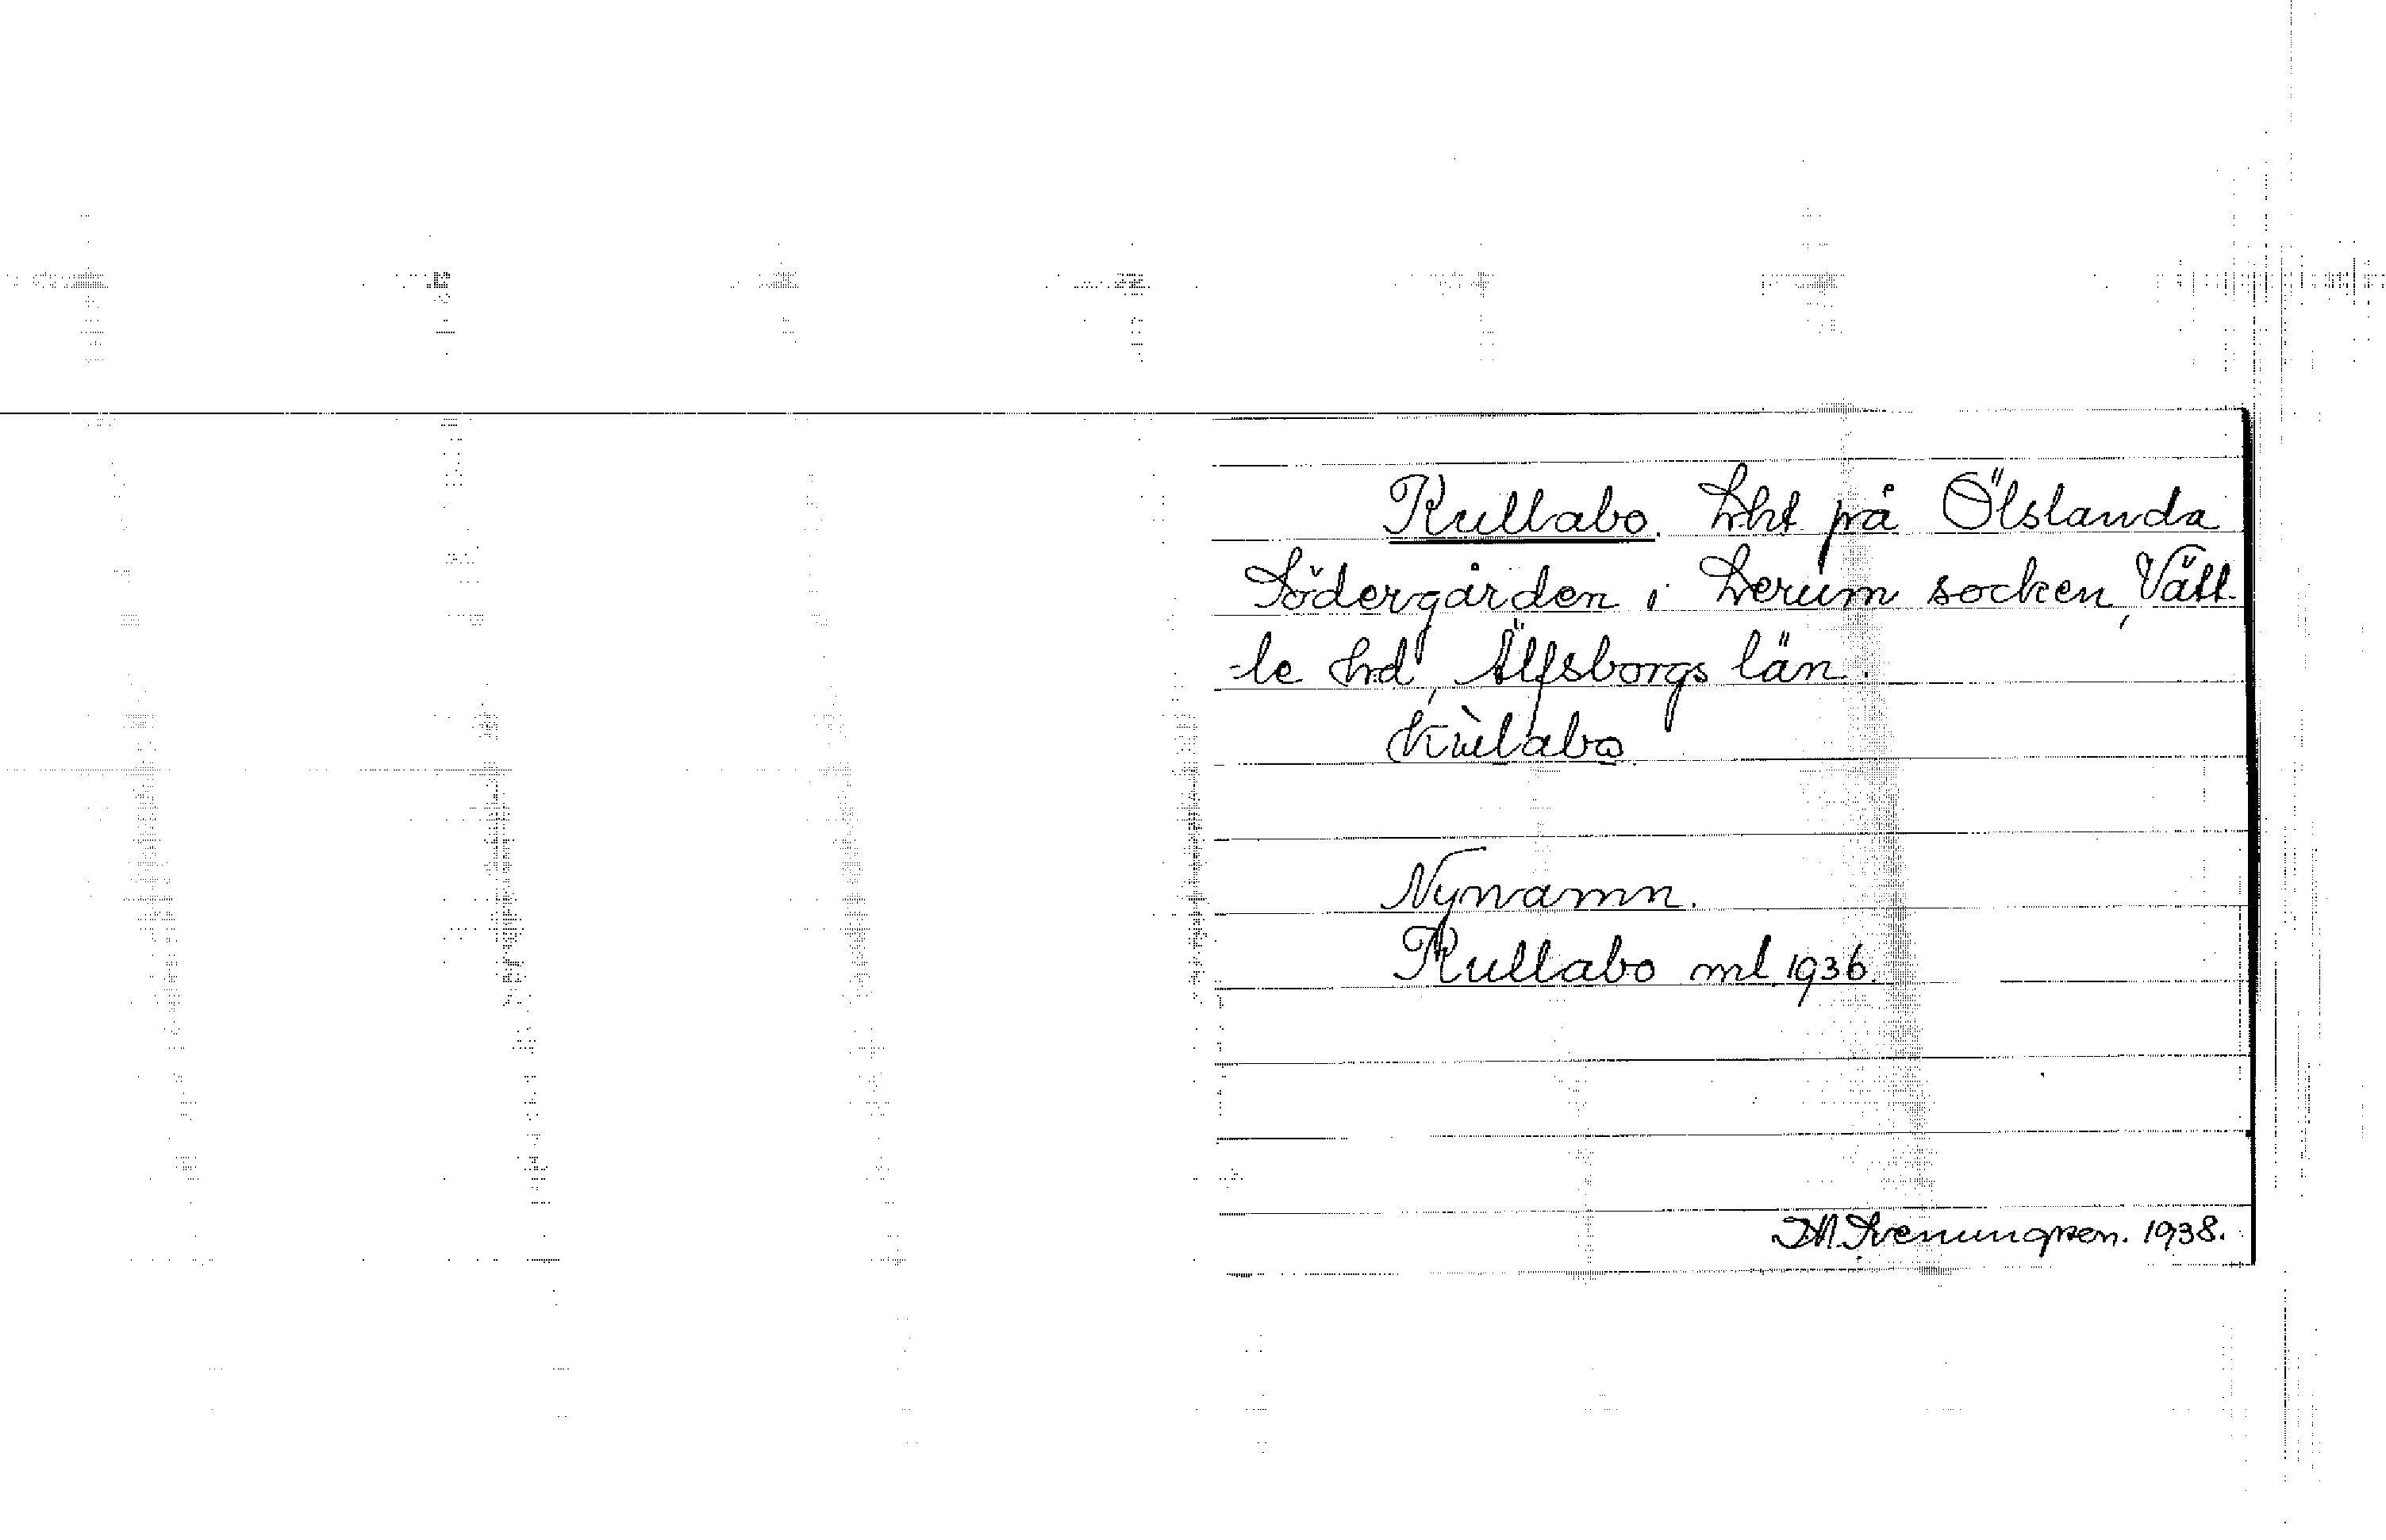 Kullabo. Lht på Ölslanda
Södergården i Lerum socken, Vätt-
-le hd, Älfsborgs län.
Kùlabo
Nynamn.
Kullabo ml. 1936.
Svenungsson. 1938.